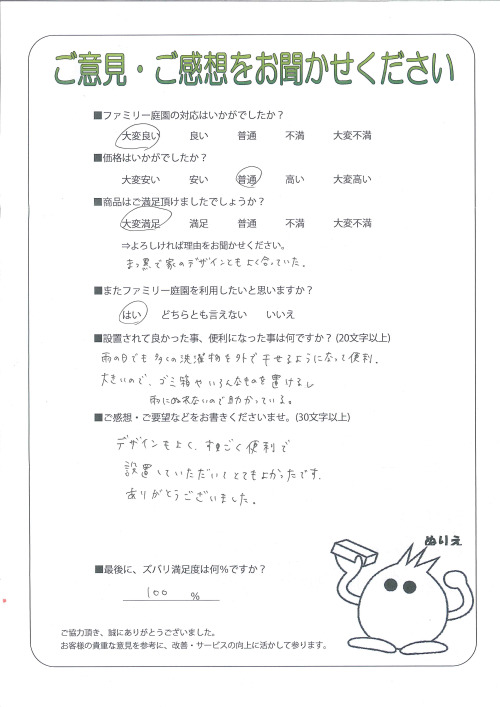 ご意見・ご感想をお聞かせください
■ファミリー庭園の対応はいかがでしたか？
大変良い 良い 普通 不満 大変不満
■価格はいかがでしたか？
大変安い 安い 普通 高い 大変高い
■商品はご満足頂けましたでしょうか？
大変満足 満足 普通 不満 大変不満
⇒よろしければ理由をお聞かせください。
まっ黒で家のデザインともよく合っていた。
■またファミリー庭園を利用したいと思いますか？
はい どちらとも言えない いいえ
■設置されて良かった事、便利になった事は何ですか？(20文字以上)
雨の日でも多くの洗濯物を外で干せるようになって便利。
大きいので、ゴミ箱やいろんなものを置けるし
雨にぬれないので助かっている。
■ご感想・ご要望などをお書きくださいませ。(30文字以上)
デザインもよく、すごく便利で
設置していただいてとてもよかったです。
ありがとうございました。
ぬりえ
■最後に、ズバリ満足度は何%ですか？
100 %
ご協力頂き、誠にありがとうございました。
お客様の貴重な意見を参考に、改善・サービスの向上に活かして参ります。